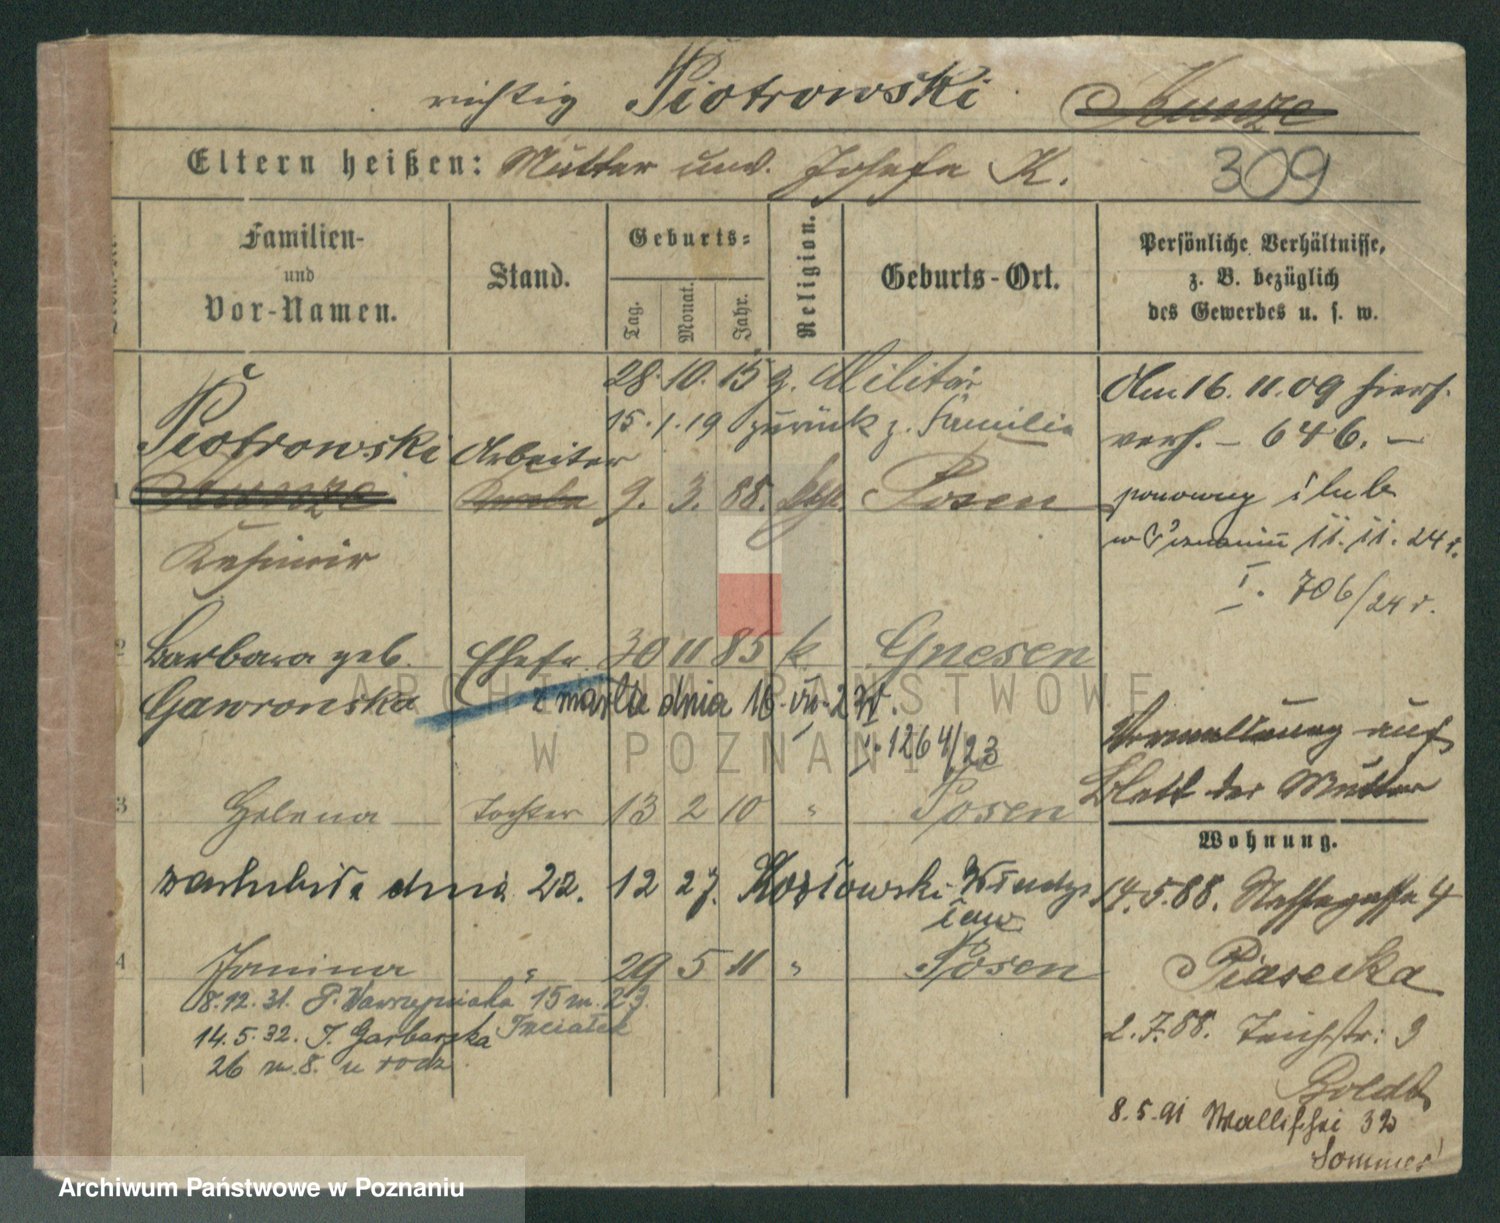 richtig Piotrowski Kunze
Eltern heißen: Mutter unv. Josefa K. 309
Familien-
und
Vor-Namen.
Stand.
Geburts-
Tag.
Monat.
Jahr.
Religion.
Geburts-Ort.
Persönliche Verhältnisse,
z. B. bezüglich
des Gewerbes u. s. w.
28. 10. 15 z. Militär
15. 1. 19 zurück z. Familie
Piotrowski Arbeiter
1 Kunze 9. 3. 88. Posen
Kasimir
Am 16. 11. 09 hiers.
verh. - 646. -
ponowny ślub
w Poznaniu 11. 11. 24 r.
I. 706/24 r.
2 Barbara geb. Ehefr. 30 11 85 k Gnesen
Gawronska zmarła dnia 16. VII. 23 r.
I. 1264/23
3 Helena Tochter 13 2 10 " Posen
zaślubiła dnia 22. 12 27. Kozłowski Władys
ław
4 Janina " 29 5 11 " Posen
8.12.31. P. Wawrzyniaka 15 m. 23
14.5.32. J. Garbarska
26 m. 8. u rodz.
Verwaltung auf
Blatt der Mutter
Wohnung.
14.5.88. Nassegasse 4
Piasecka
2.7.88. Teichstr: 9
Boldt
8.5.91 Wallischei 32
Sommer
ARCHIWUM PAŃSTWOWE
W POZNANIU
Archiwum Państwowe w Poznaniu